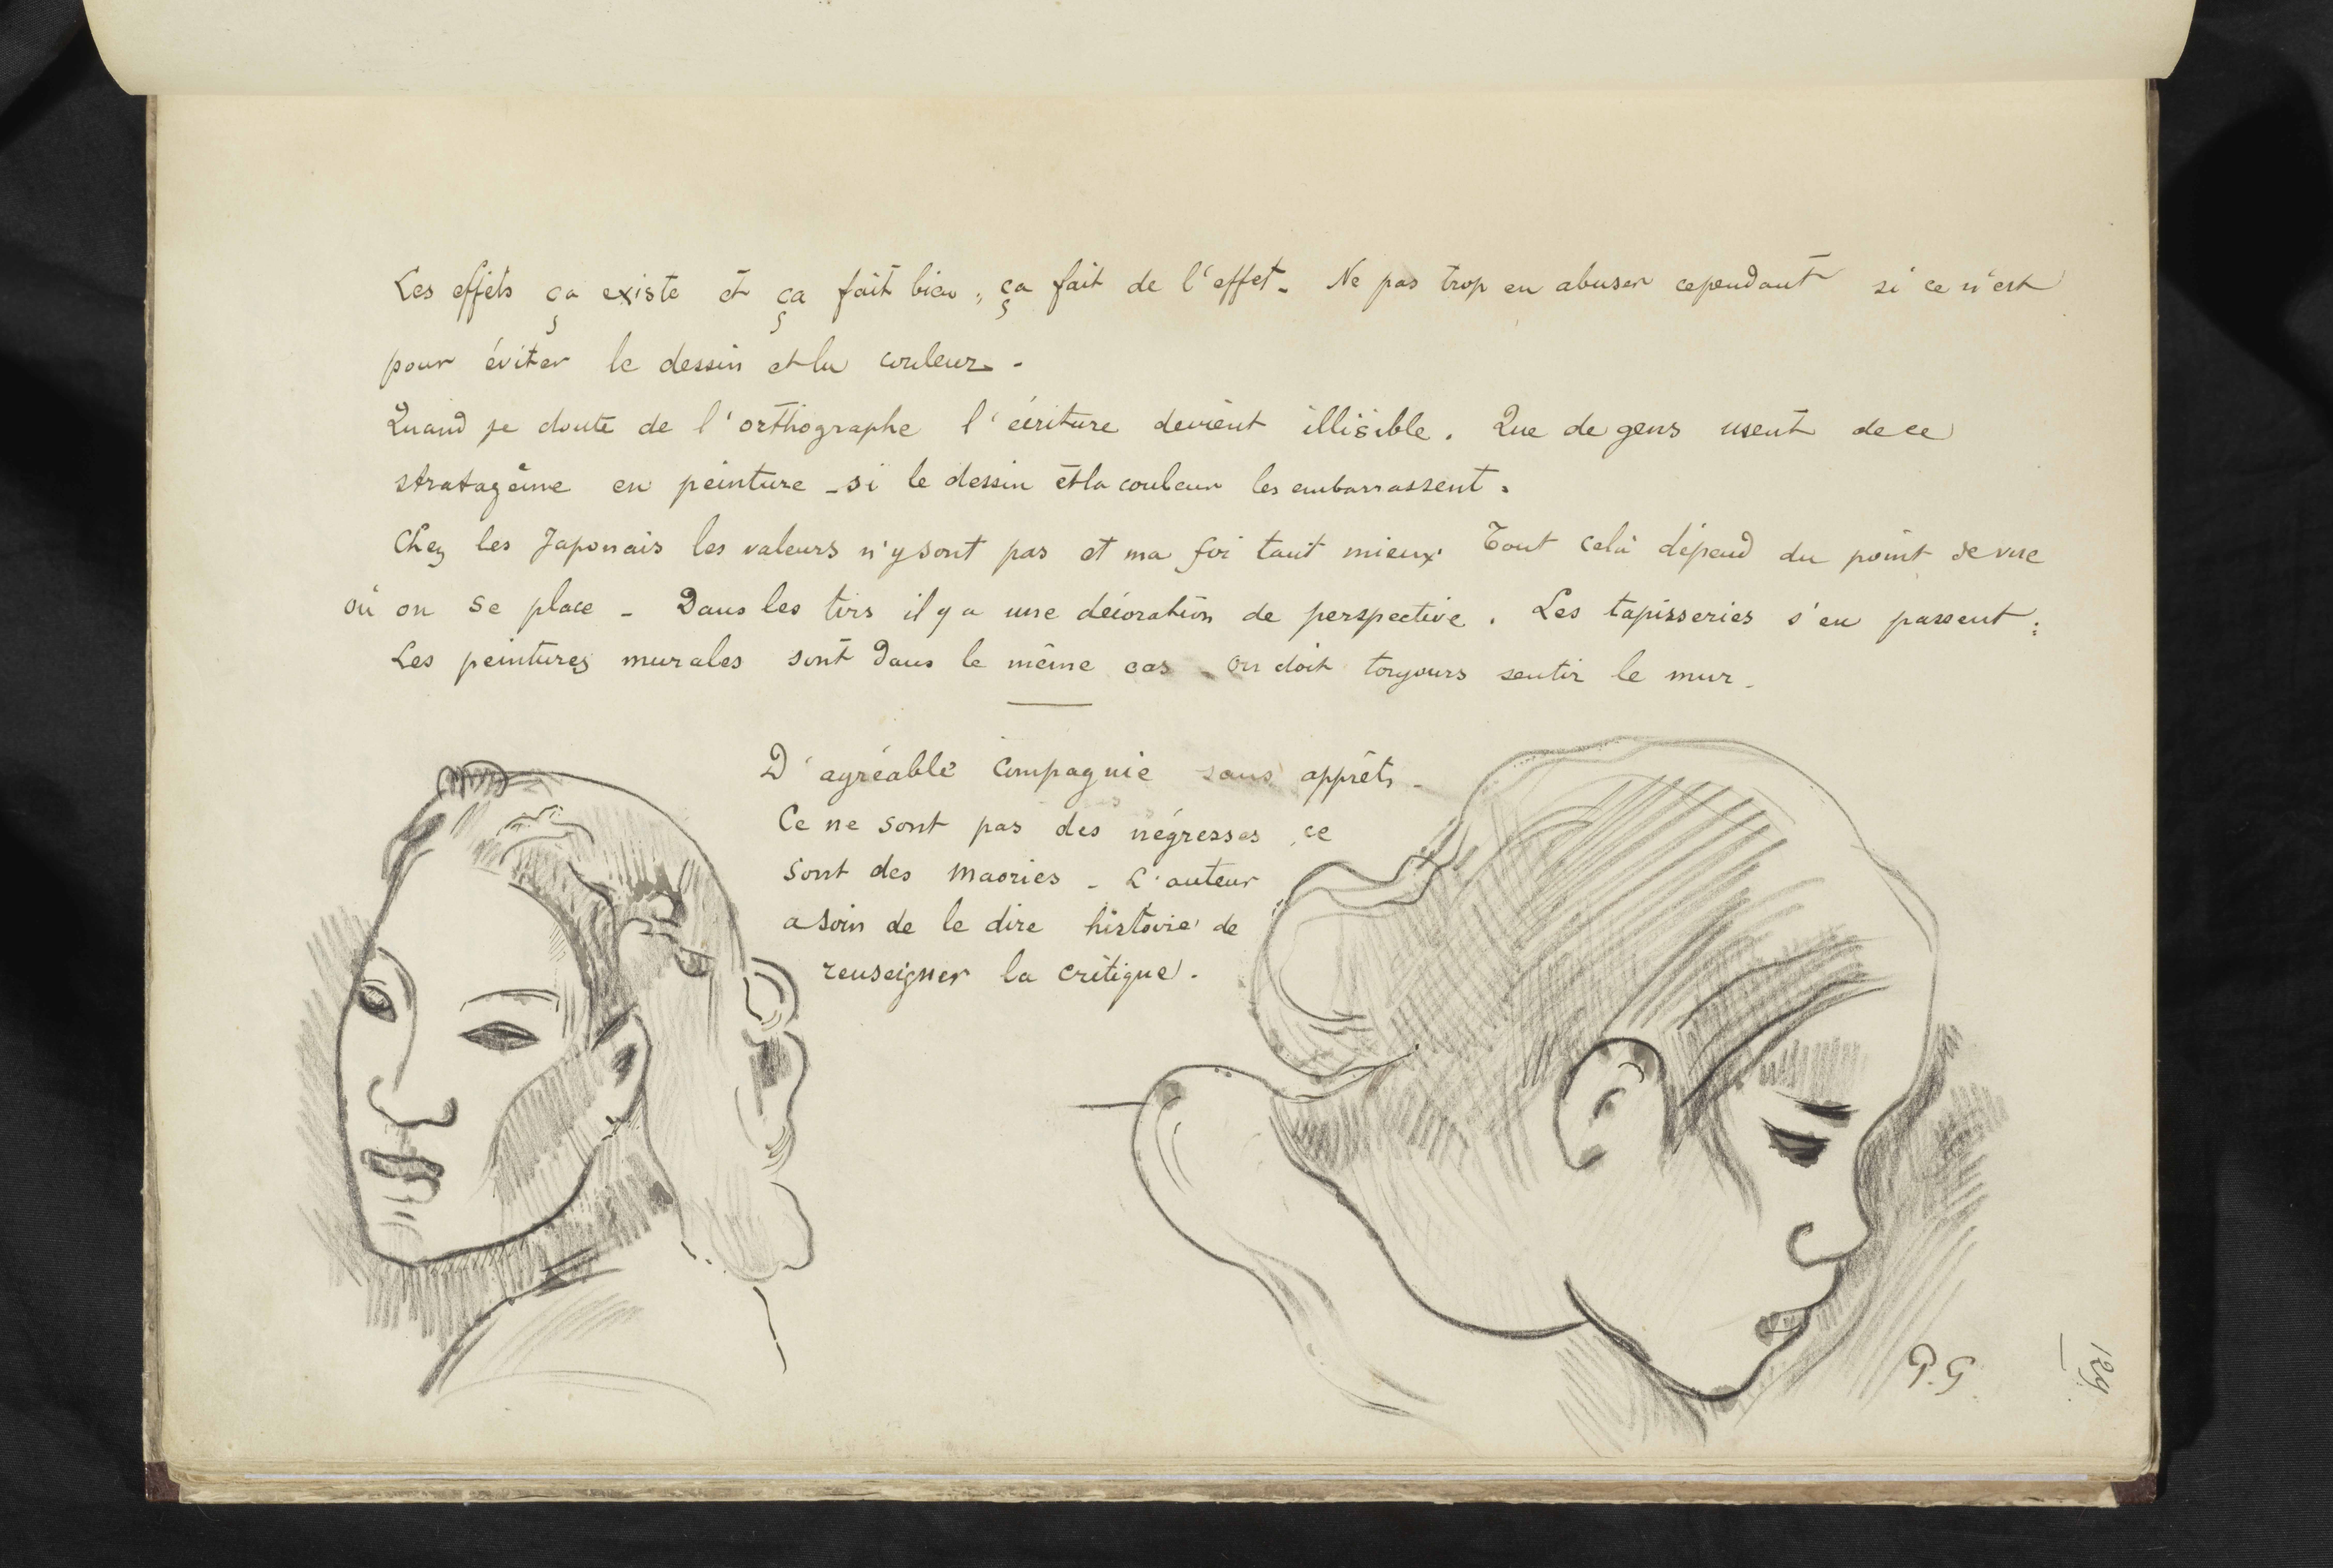 Les effets ça existe et ça fait bien, ça fait de l'effet. Ne pas trop en abuser cependant si ce n'est
pour éviter le dessin et la couleur.
Quand je doute de l'orthographe l'écriture devient illisible. Que de gens usent de ce
stratagème en peinture - si le dessin et la couleur les embarrassent.
Chez les Japonais les valeurs n'y sont pas et ma foi tant mieux. Tout celà dépend du point de vue
où on se place - Dans les tirs il y a une décoration de perspective. Les tapisseries s'en passent;
Les peintures murales sont dans le même cas - on doit toujours sentir le mur.
D'agréable compagnie sans apprêts -
Ce ne sont pas des négresses, ce
sont des maories - L'auteur
a soin de le dire histoire de
renseigner la critique.
P.G.
129